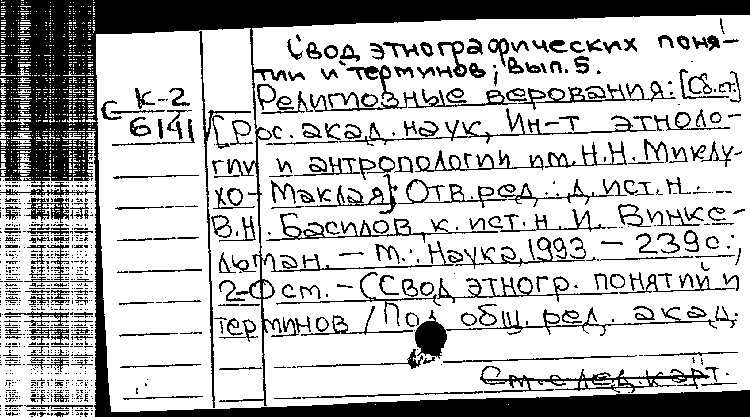 Свод этнографических поня-
тий и терминов; Вып. 5.
С К-2 Религиозные верования: [Сб. ст.]
6141 / [Рос. акад. наук, Ин-т этноло-
гии и антропологии им. Н.Н. Миклу-
хо-Маклая]; Отв. ред.: д. ист. н.
В.Н. Басилов, к. ист. н. И. Винке-
льман. — М.: Наука, 1993 — 239 с.;
см. — (Свод этногр. понятий и
терминов / Под общ. ред. акад.
См. след. карт.